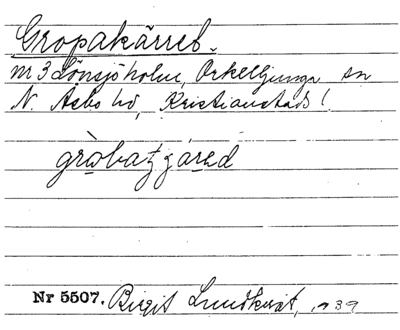 Gropakärret.
nr 3 Lönsjöholm, Örkelljunga sn
N. Åsbo hd, Kristianstads l.
Nr 5507. Birgit Lundkvist, 1939